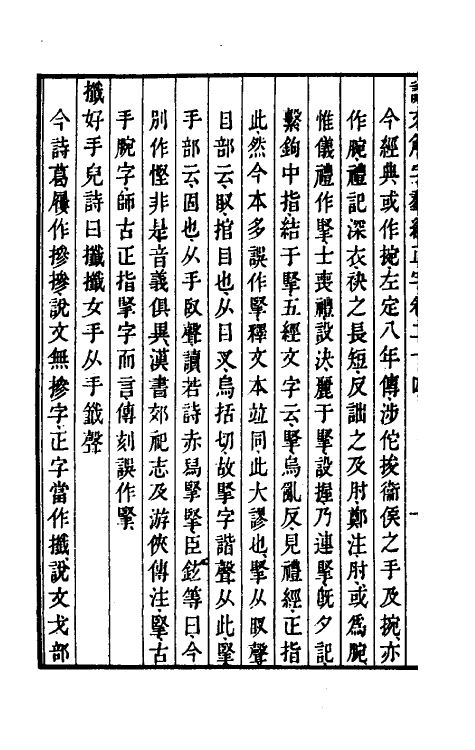 今經典或作捥左定八年傳涉佗捘衞侯之手及捥亦
作腕禮記深衣袂之長短反詘之及肘鄭注肘或爲腕
惟儀禮作𢯲士喪禮設決麗于𢯲設握乃連𢯲旣夕記
繫鉤中指結于𢯲五經文字云𢯲烏亂反見禮經正指
此然今本多誤作掔釋文本竝同此大謬也掔从臤聲
目部云𥄗捾目也从目叉烏括切故𢯲字諧聲从此掔
手部云固也从手臤聲讀若詩赤舄掔掔臣鉉等曰今
別作慳非是音義俱異漢書郊祀志及游俠傳注𢯲古
手腕字師古正指𢯲字而言傳刻誤作掔
攕好手皃詩曰攕攕女手从手韱聲
今詩葛屨作摻摻說文無摻字正字當作攕說文戈部